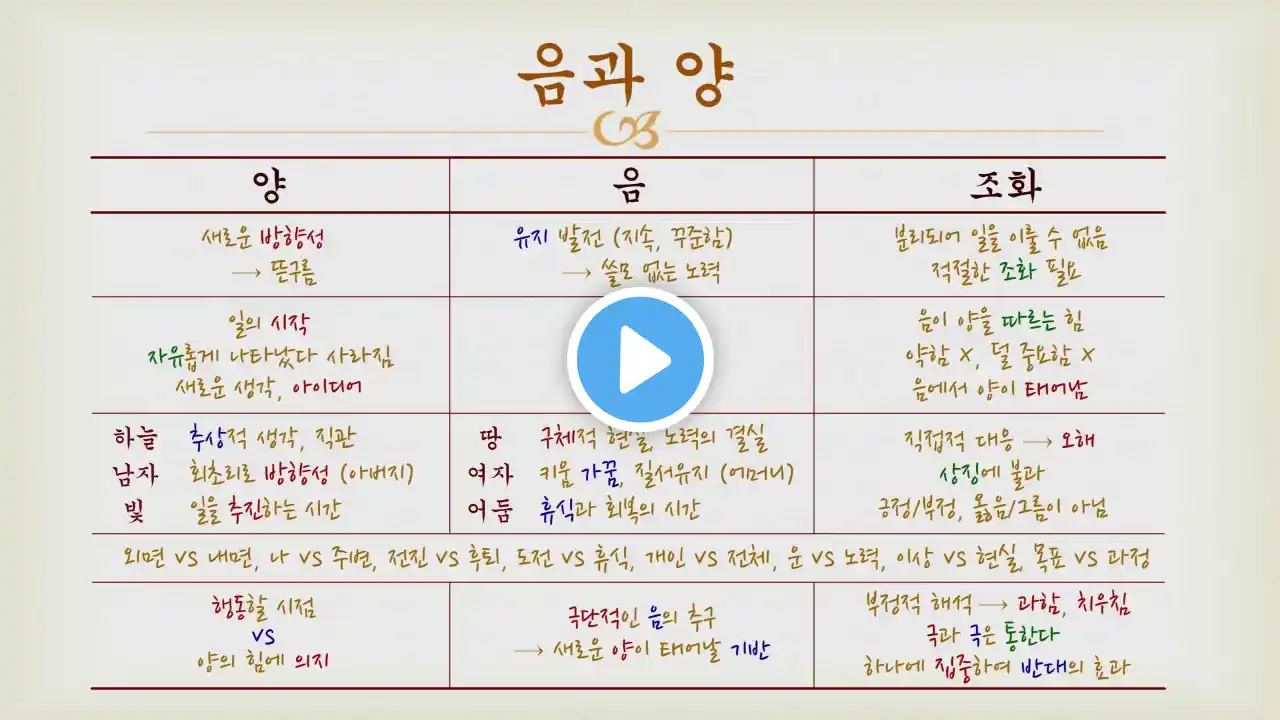 음과 양
양 음 조화
새로운 방향성
→ 뜬구름
유지 발전 (지속, 꾸준함)
→ 쓸모 없는 노력
분리되어 일을 이룰 수 없음
적절한 조화 필요
일의 시작
자유롭게 나타났다 사라짐
새로운 생각, 아이디어
음이 양을 따르는 힘
약함 X, 덜 중요함 X
음에서 양이 태어남
하늘 추상적 생각, 직관
남자 회초리로 방향성 (아버지)
빛 일을 추진하는 시간
땅 구체적 현실, 노력의 결실
여자 키움 가꿈, 질서유지 (어머니)
어둠 휴식과 회복의 시간
직접적 대응 → 오해
상징에 불과
긍정/부정, 옳음/그름이 아님
외면 vs 내면, 나 vs 주변, 전진 vs 후퇴, 도전 vs 휴식, 개인 vs 전체, 운 vs 노력, 이상 vs 현실, 목표 vs 과정
행동할 시점
vs
양의 힘에 의지
극단적인 음의 추구
→ 새로운 양이 태어날 기반
부정적 해석 → 과함, 치우침
극과 극은 통한다
하나에 집중하여 반대의 효과